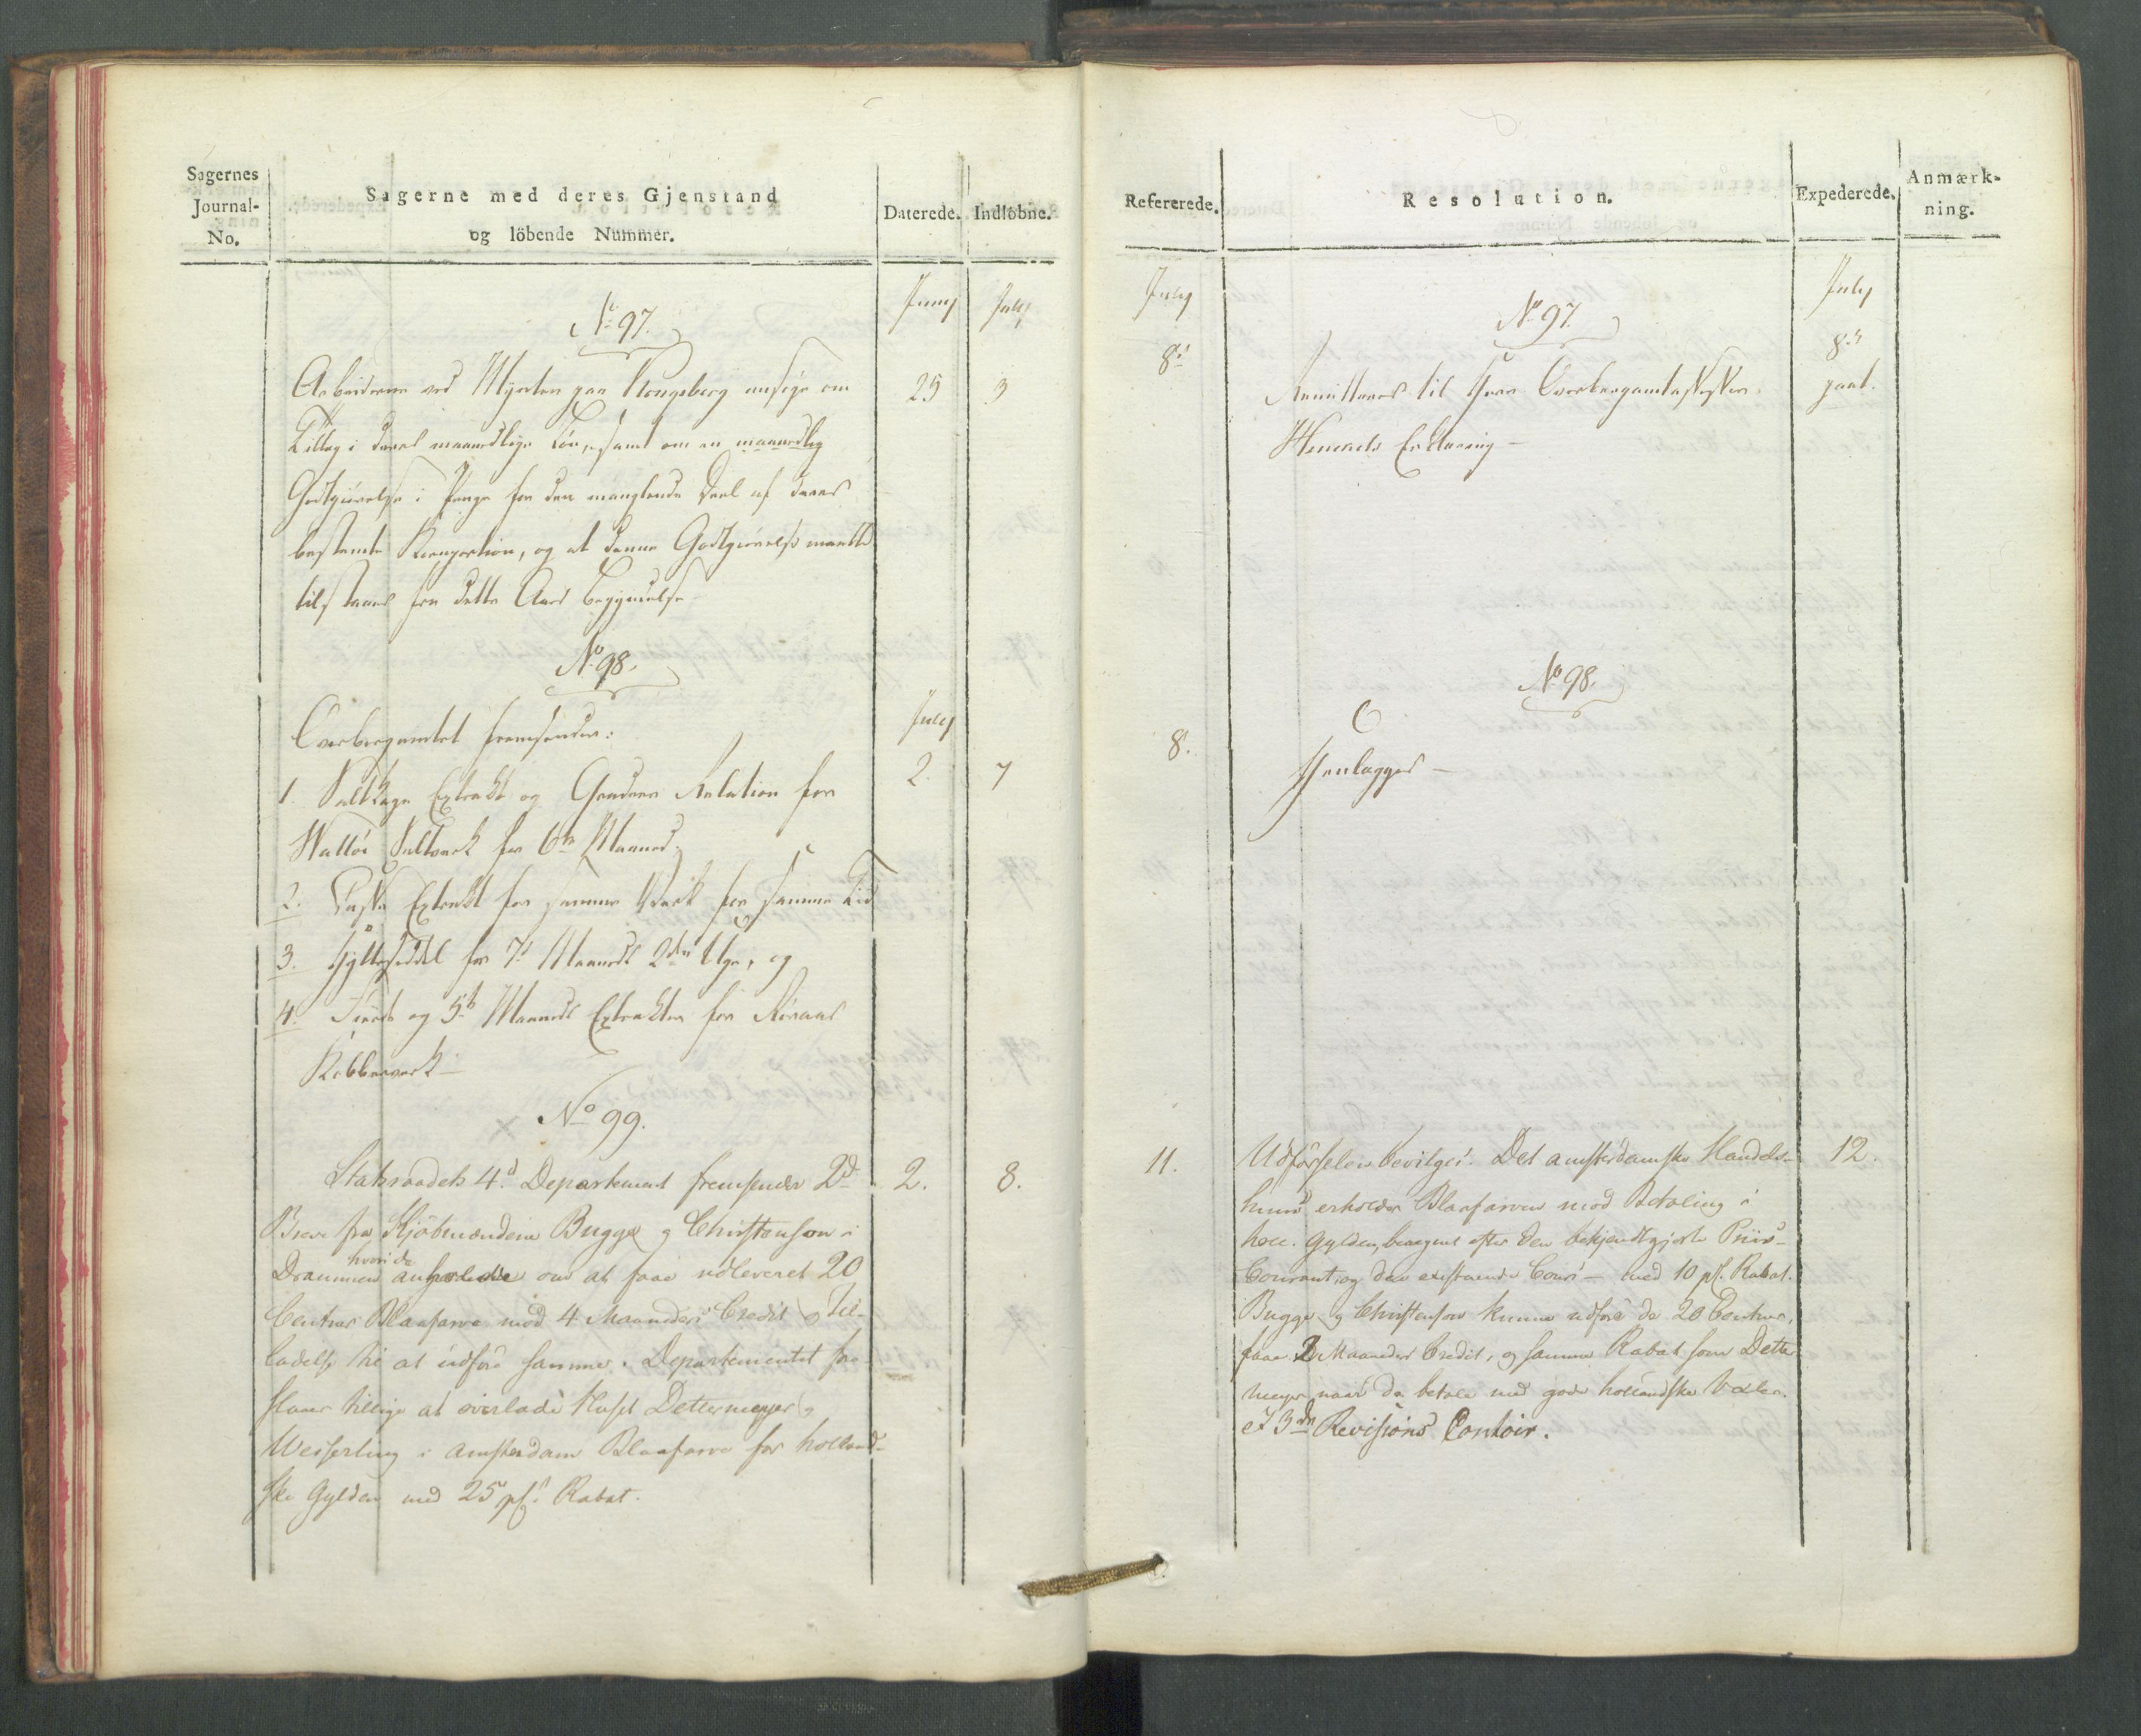 Sagernes
Journal-
No.
Sagerne med deres Gjenstand
og löbende Nummer.
Daterede.
Indlöbne.
Juny
July
No 97.
Arbeiderne ved Mynten paa Kongsberg ansøge om
25
3
Tillæg i deres maanedlige Løn, samt om en maanedlig
Godtgiørelse i Penge for den manglende Deel af deres
bestemte Kornportion, og at denne Godtgiørelse maatte
tilstaaes fra dette Aars Begyndelse
No 98.
Overbergamtet fremsender:
July
1. Saltkage Extrakt og Graderer Relation for
2.
7
Walløe Saltverk for 6te Maaned.
2. Extrakt for samme Værk for samme Tid
3. Hytteseddel for 7de Maaneds 2den Uge, og
4. og 5te Maaneds Extrakter for Røraas
Kobberverk
No 99.
Statsraadets 4d Departement fremsender 2de
2.
8.
Breve fra Kjøbmændene Bugge og Christenson i
Drammen hvori de anholde om at faae udleveret 20
Centner Blaafarve mod 4 Maaneders Credit og Til-
ladelse til at udføre samme. Departementet fore-
slaaer tillige at overlade Huset Dettermeyer &
Weisserling i Amsterdam Blaafarve for holland-
ske Gylden med 25 pCt Rabat.
Refererede.
Resolution.
Expederede.
Anmærk-
ning.
July
July
No 97.
8de
8de
Remitteres til Herr
gaaet.
Erklæring
No 98.
8.
Henlægges
11.
Udførselen bevilges. Det amsterdamske Handels-
12.
huus erholder Blaafarven mod Betaling i
holl. Gylden, beregnet efter den bekjendtgjorte Priis-
Courant, og den existerende Cours — med 10 pCt. Rabat.
Bugge og Christenson kunne udføre de 20 Centner,
faae 2 Maaneders Credit, og samme Rabat som Detter-
meyer, naar de betale med gode hollandske Vexler.
3die Revisions Contoir.